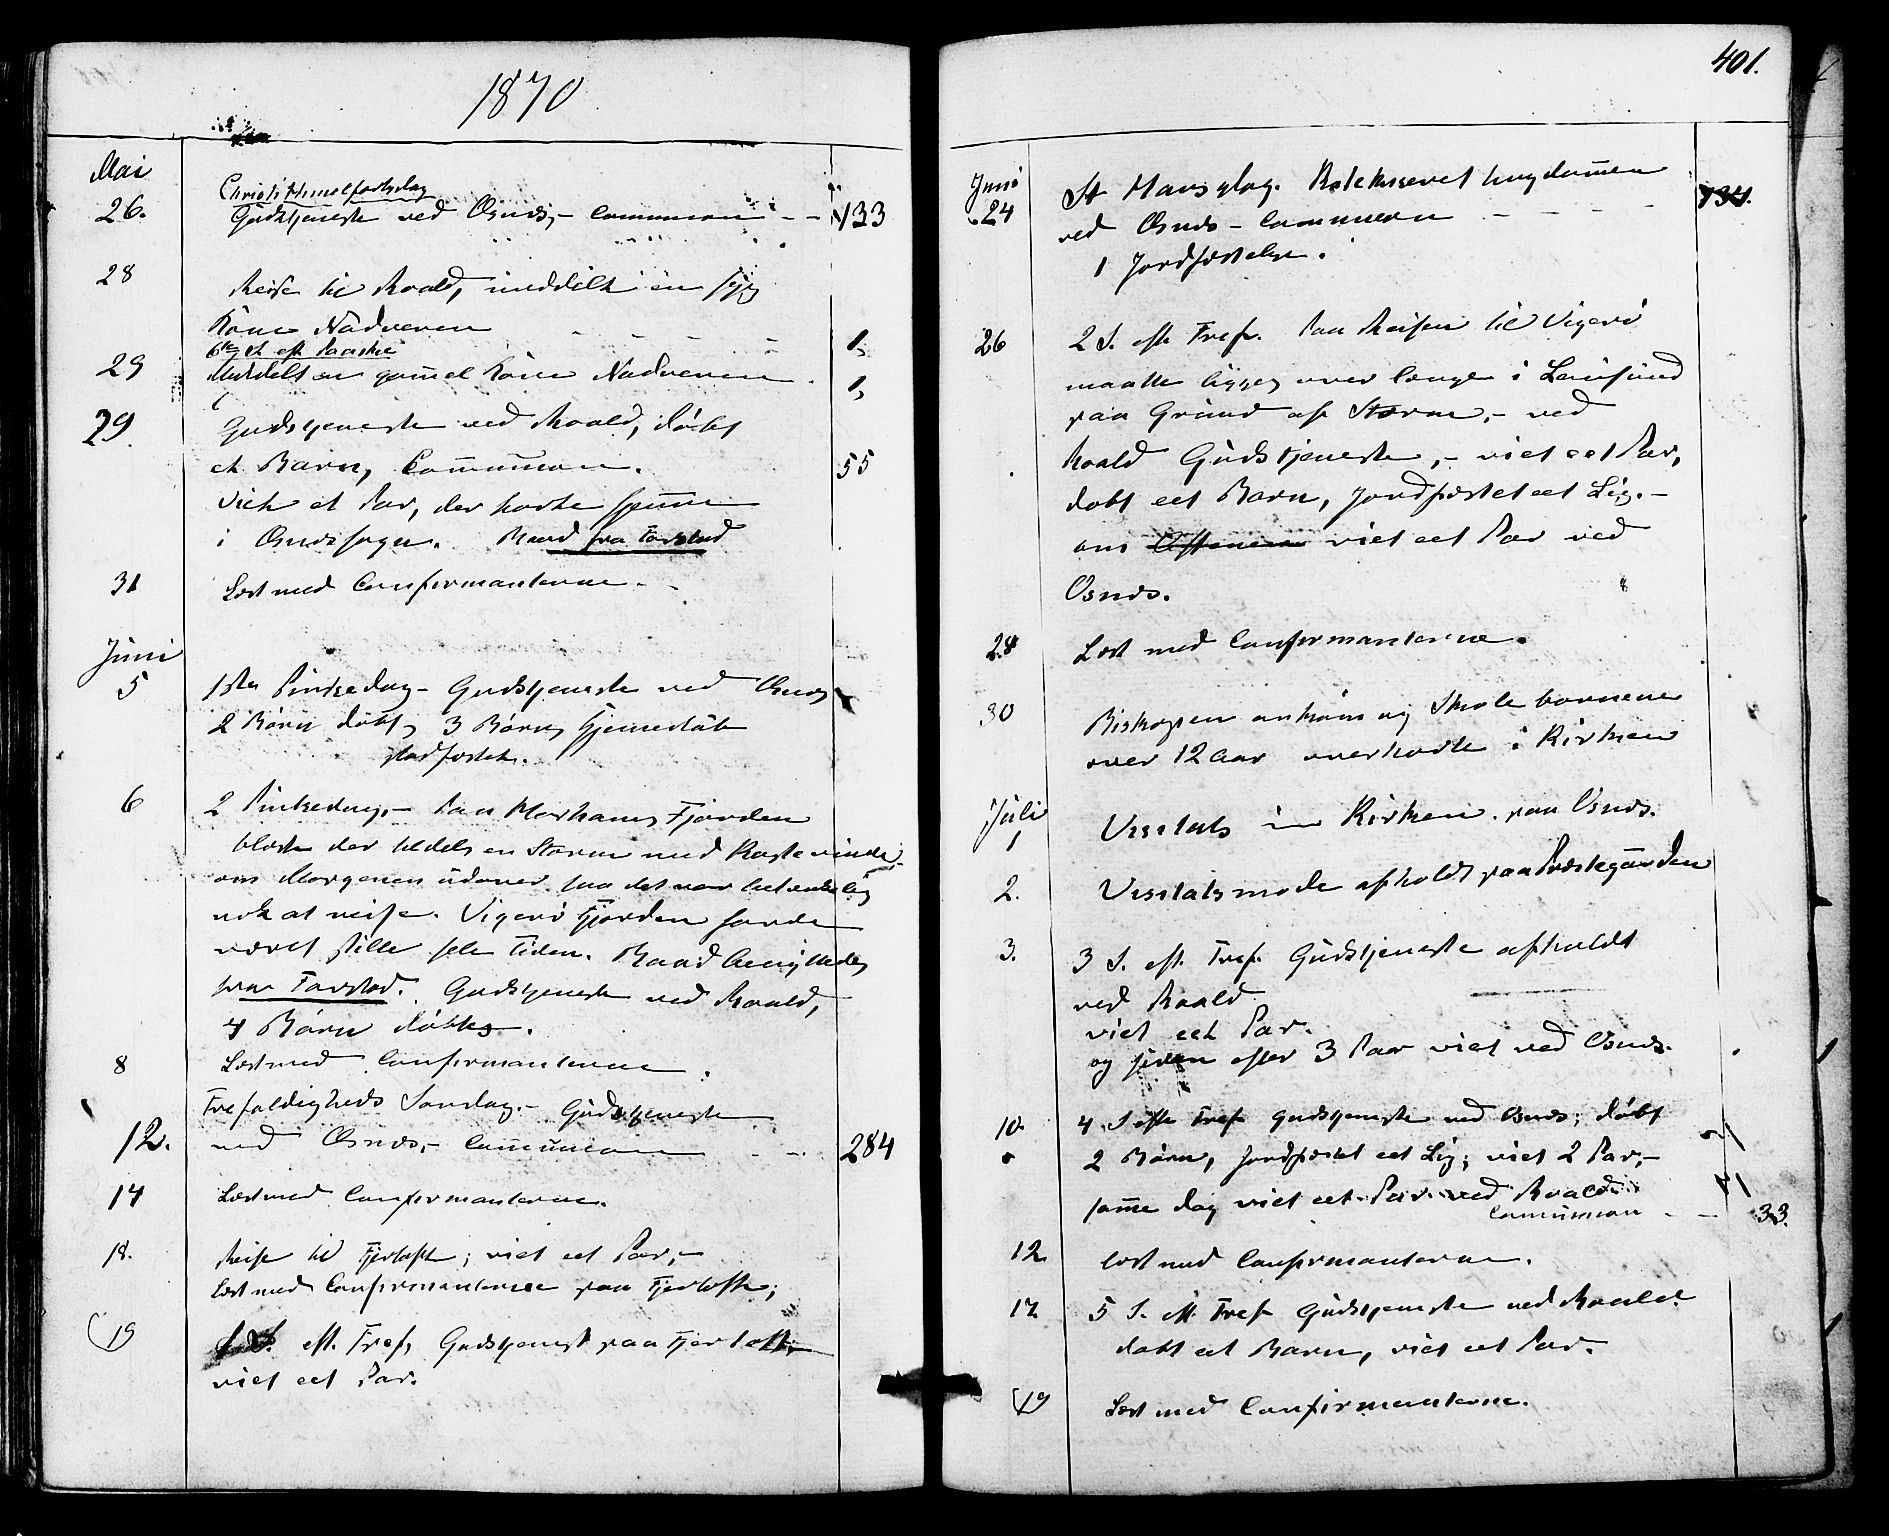 1870
Mai
Christi Himelfartsdag
26. Gudstjeneste ved Osnæs, - Communion - - 133
28 Reise til Roald, meddelt en syg
Kone Nadveren - - - - 1,
6te S. eft Paaske
29 Meddelt en gammel Kone Nadveren . 1,
29. Gudstjeneste ved Roald, døbt
et Barn, Communion. 55
Viet et Par, der hørte hjemme
i Osnæs sogn. Baad fra Farstad
31 Læst med Confirmanterne. -
Juni
5 1ste Pintsedag - Gudstjeneste ved Osnæs
2 Børn døbt, 3 Børns Hjemmedåb
stadfæstet.
6 2 Pintsedag, - Paa Harhams Fjorden
blæste der tildels en Storm med Kastevinde
om Morgenen udover, saa det var betænkelig
nok at reise. Vigerø Fjorden havde
været stille hele Tiden. Baad benyttedes
fra Farstad. Gudstjeneste ved Roald,
4 Børn døbtes.
8 Læst med Confirmanterne.
Trefoldigheds Søndag. - Gudstjeneste
12. ved Osnæs, - Communion - - 284
14 Læst med Confirmanterne.
18. Reise til Fjertoft; viet eet Par, -
Læst med Confirmanterne paa Fjertoft;
19 1 S. eft. Tref. Gudstjenest paa Fjertoft;
viet eet Par.
401.
Juni
24 St Hans dag. Katekiseret Ungdommen
ved Osnæs - Communion - - - - 134.
1 Jordfæstelse.
26 2 S. eft Tref. Paa Reisen til Vigerø
maatte ligges over længe i Lausund
paa Grund af Storm, - ved
Roald Gudstjeneste, - viet eet Par,
døbt eet Barn, jordfæstet eet Lig. -
om Aftenen viet eet Par ved
Osnæs.
28 Læst med Confirmanterne.
30 Biskopen ankom og Skolebørnene
over 12 Aar overhørte i Kirken
Juli
1 Visitats i Kirken paa Osnæs.
2. Visitatsmøde afholdt paa Præstegaarden
3. 3 S. eft. Tref. Gudstjeneste afholdt
ved Roald.
viet eet Par.
og siden efter 3 Par viet ved Osnæs.
10. 4 S eft Tref Gudstjeneste ved Osnæs; døbt
2 Børn, jordfæstet eet Lig; viet 2 Par, -
samme dag viet eet Par ved Roald.
Communion - - 33.
12 læst med Confirmanterne.
17 5 S. eft. Tref Gudstjeneste ved Roald.
døbt eet Barn, viet eet Par.
19 Læst med Confirmanterne.